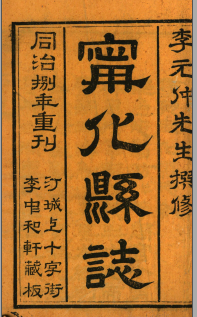 李元仲先生撰修
甯化縣誌
同治捌年重刊
汀城上十字街
李中和軒藏板